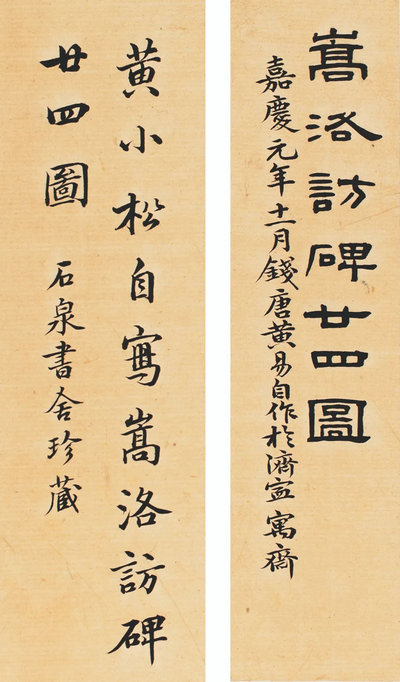 嵩洛訪碑廿四圖
嘉慶元年十一月錢唐黃易自作於濟寍寓齋
黃小松自寫嵩洛訪碑
廿四圖
石泉書舍珍藏